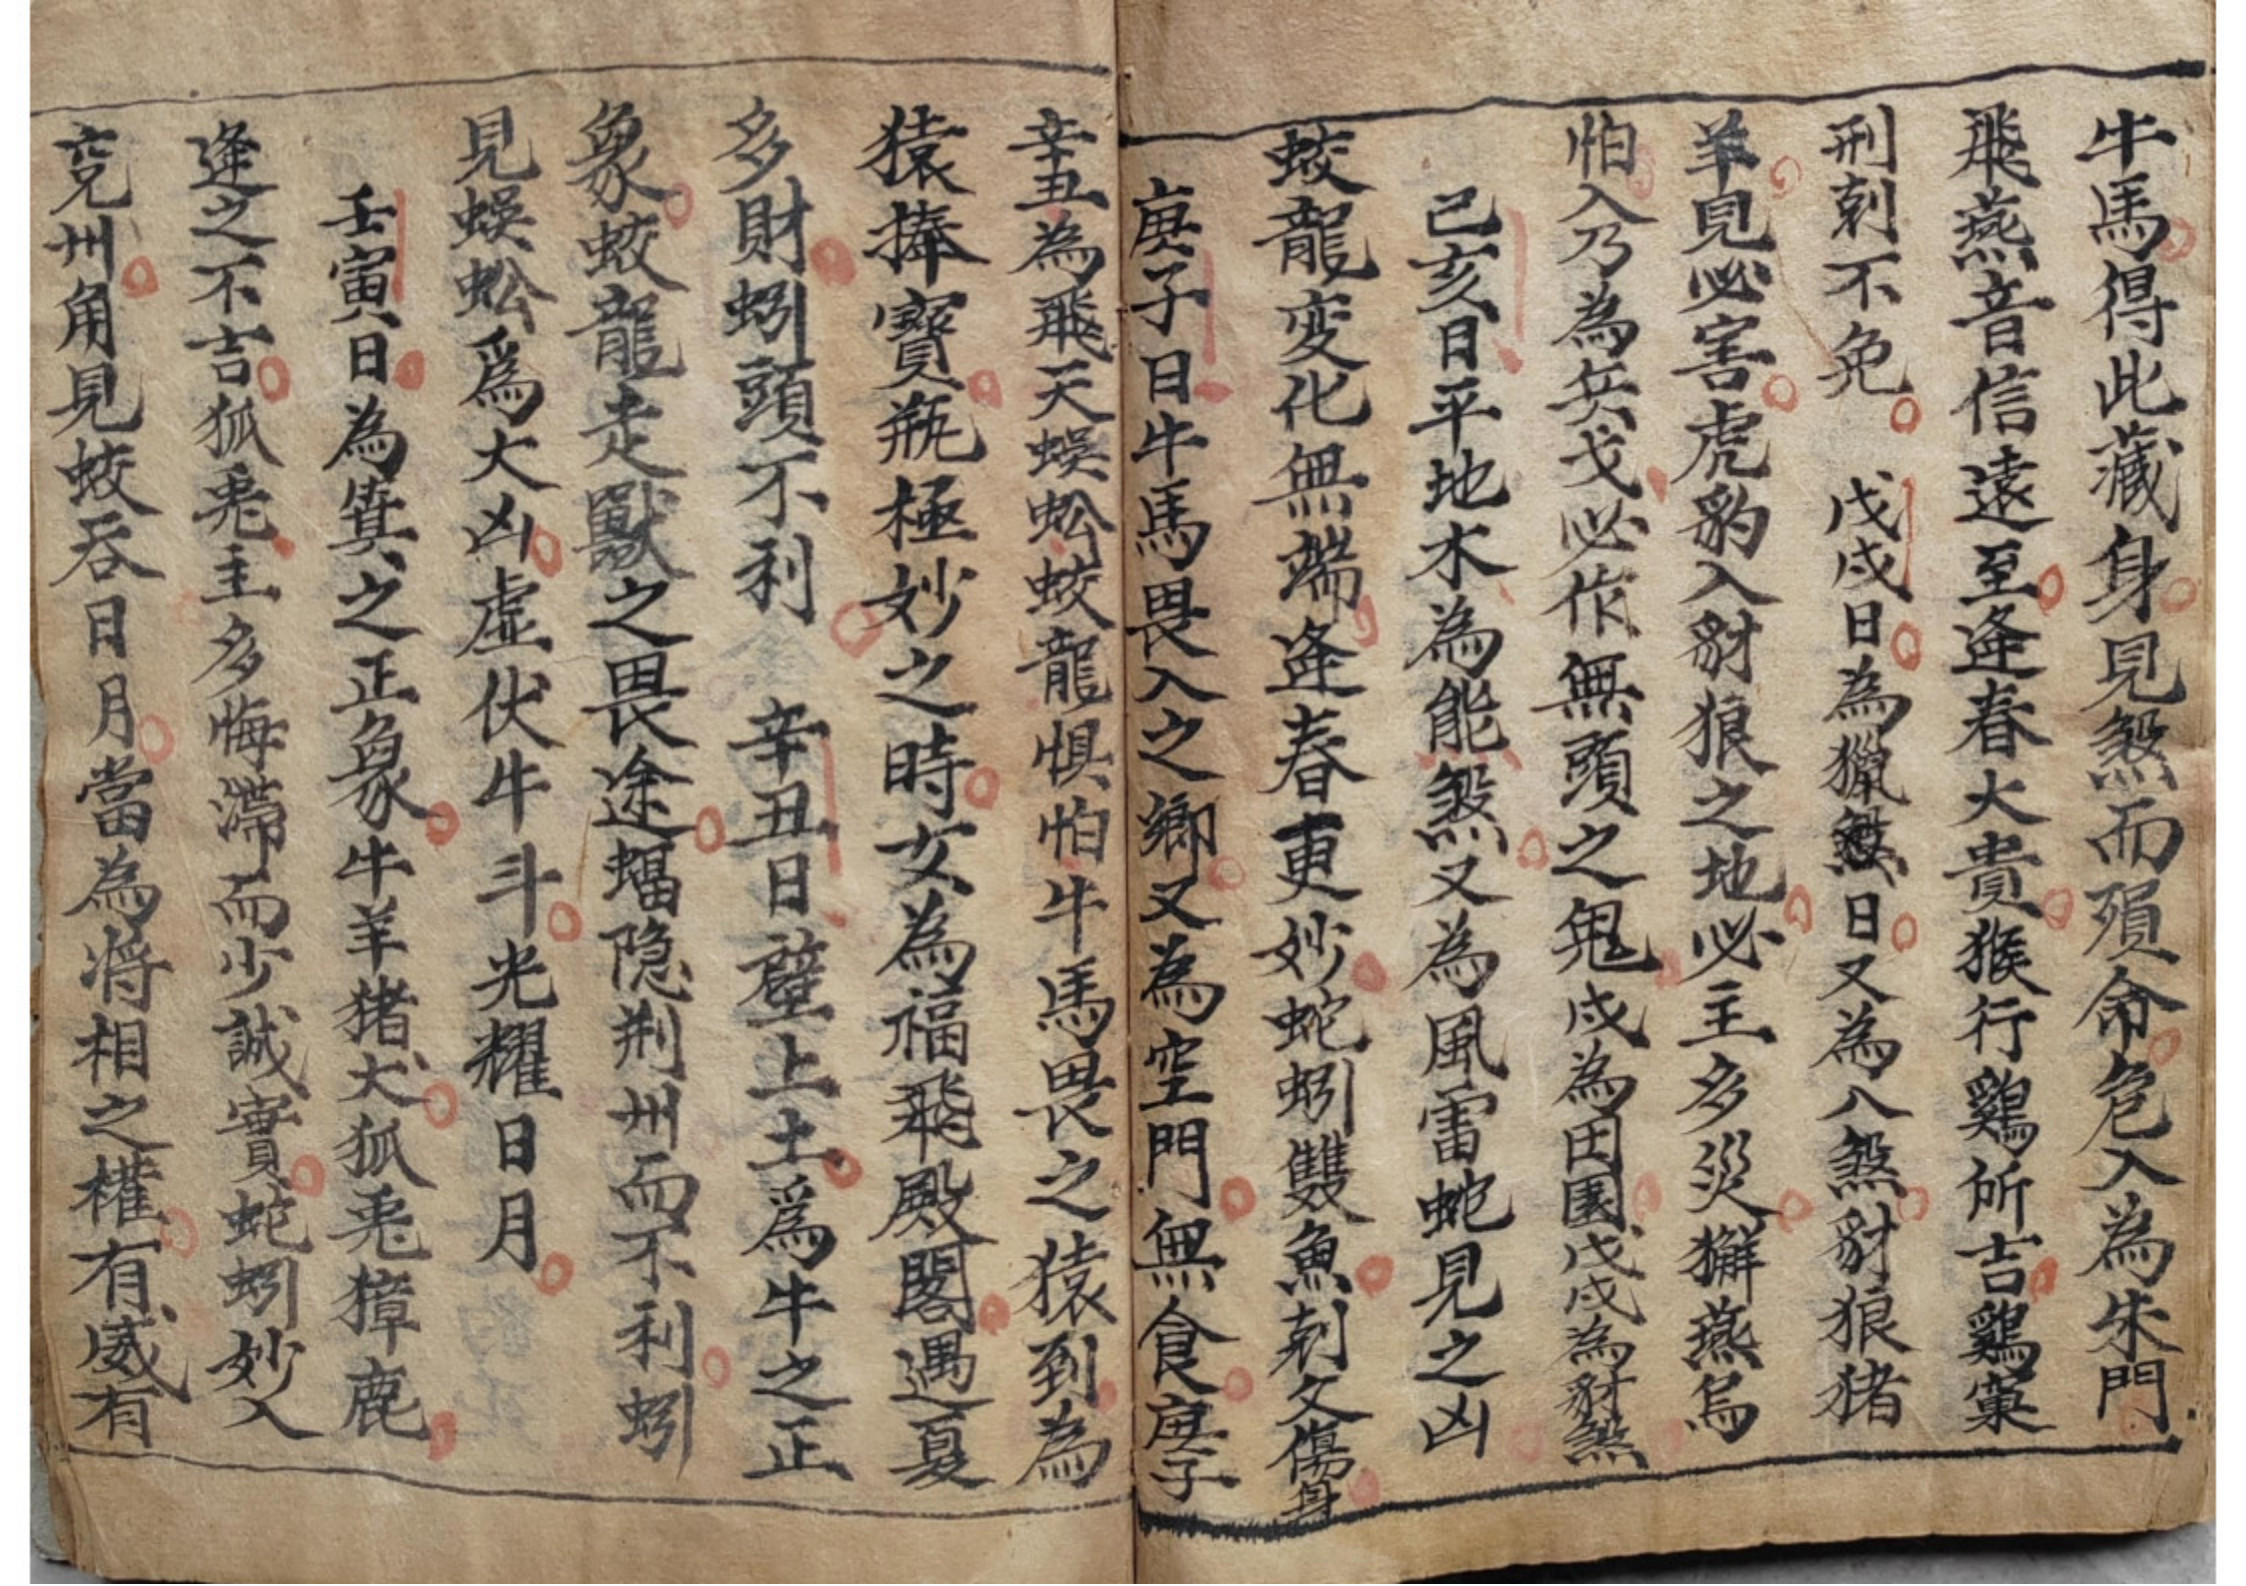 牛馬得此藏身見煞而殞命危入為朱門
飛燕音信遠至逢春大貴猴行鷄所吉鷄窠
刑刺不免 戊戌日為獵煞日又為八煞豺狼猪
羊見必害虎豹入豺狼之地必主多災獬燕烏
怕入乃為兵戈必作無頭之鬼戌為田園戊戌為豺煞
己亥日平地木為能煞又為風雷蛇見之凶
蛟龍変化無端逢春更妙蛇蚓雙魚刺文傷身
庚子日牛馬畏入之鄉又為空門無食庚子
辛丑為飛天蜈蚣蛟龍惧怕牛馬畏之猿到為
猿捧寳瓶極妙之時女為福飛殿閣遇夏
多財蚓頭不利 辛丑日壁上土爲牛之正
象蛟龍走獸之畏途蝠隐荆州而不利蚓
見蜈蚣爲大凶虚伏牛斗光耀日月
壬寅日為箕之正象牛羊猪犬狐兎獐鹿
逢之不吉狐兎主多悔滯而少誠實蛇蚓妙入
兖州角見蛟吞日月當為将相之權有威有